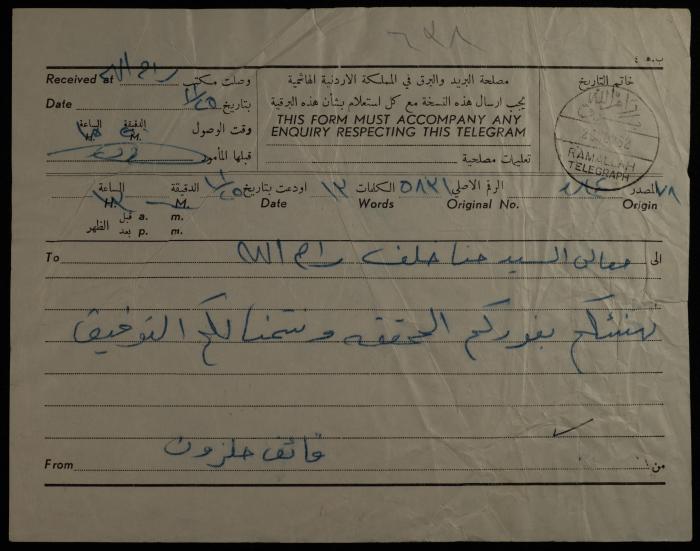 ٦٣٨
ب.ه. ٤
Received at رام الله وصلت مكتب
Date بتاريخ
الساعة الدقيقة وقت الوصول
H. M.
قبلها المأمور
مصلحة البريد والبرق في المملكة الاردنية الهاشمية
يجب ارسال هذه النسخة مع كل استعلام بشأن هذه البرقية
THIS FORM MUST ACCOMPANY ANY
ENQUIRY RESPECTING THIS TELEGRAM
تعليمات مصلحية
خاتم التاريخ
رام الله
RAMALLAH
TELEGRAPH
المصدر ٧٨ الرقم الاصلي ٥٨٣١ الكلمات ١٣ اودعت بتاريخ الدقيقة الساعة
Origin Original No. Words Date M. H.
قبل a. m.
الظهر
بعد p. m.
To معالي السيد حنا خلف رام الله الى
نهنئكم بفوزكم المحققه ونتمنا لكم التوفيق
From فائق حلزون من